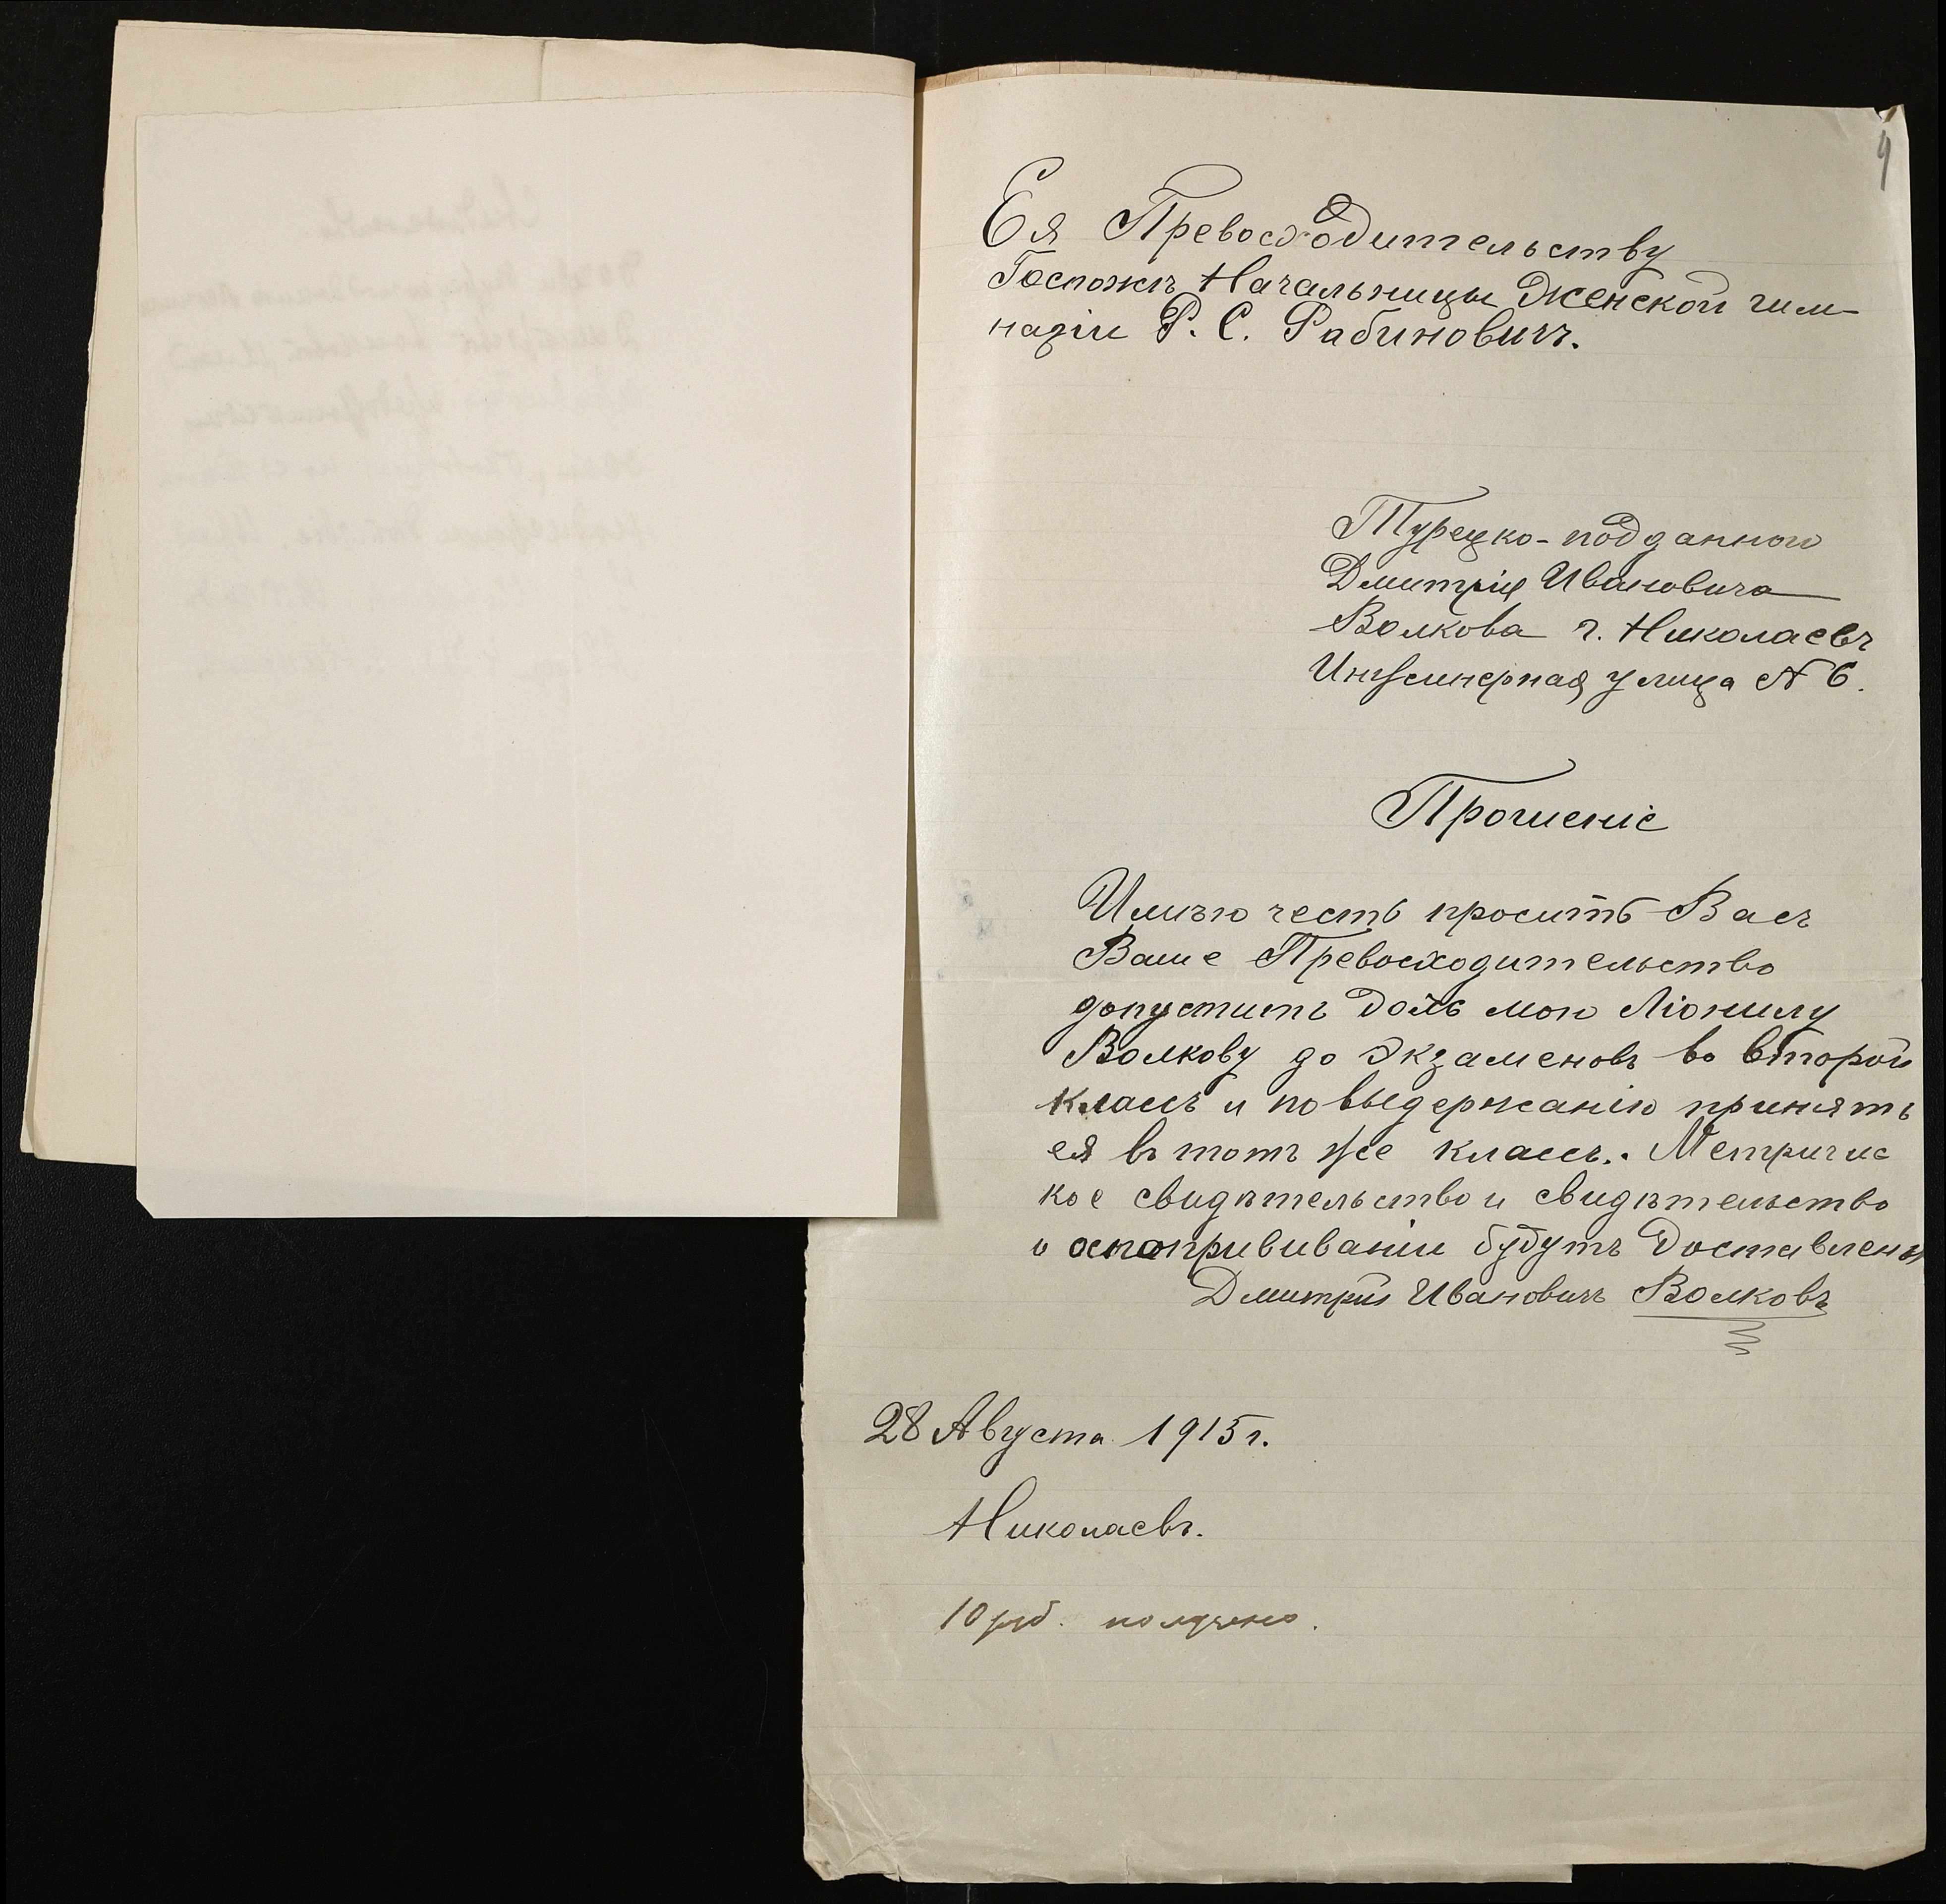 4
Ея Превосходительству
Госпожѣ Начальницы Женской гим-
назіи Р. С. Рабиновичъ.
Турецко-подданного
Дмитрія Ивановича
Волкова г. Николаевъ
Инжинерная улица № 6.
Прошеніе
Имѣю честь просить Васъ
Ваше Превосходительство
допустить дочь мою Ліонилу
Волкову до экзаменовъ во второй
классъ и по выдержанію принять
ея въ тотъ же классъ. Метричис
кое свидѣтельство и свидѣтельство
о оспопрививаніи будутъ доставлены
Дмитрій Ивановичъ Волковъ
28 Августа 1915 г.
Николаевъ.
10 руб. получено.